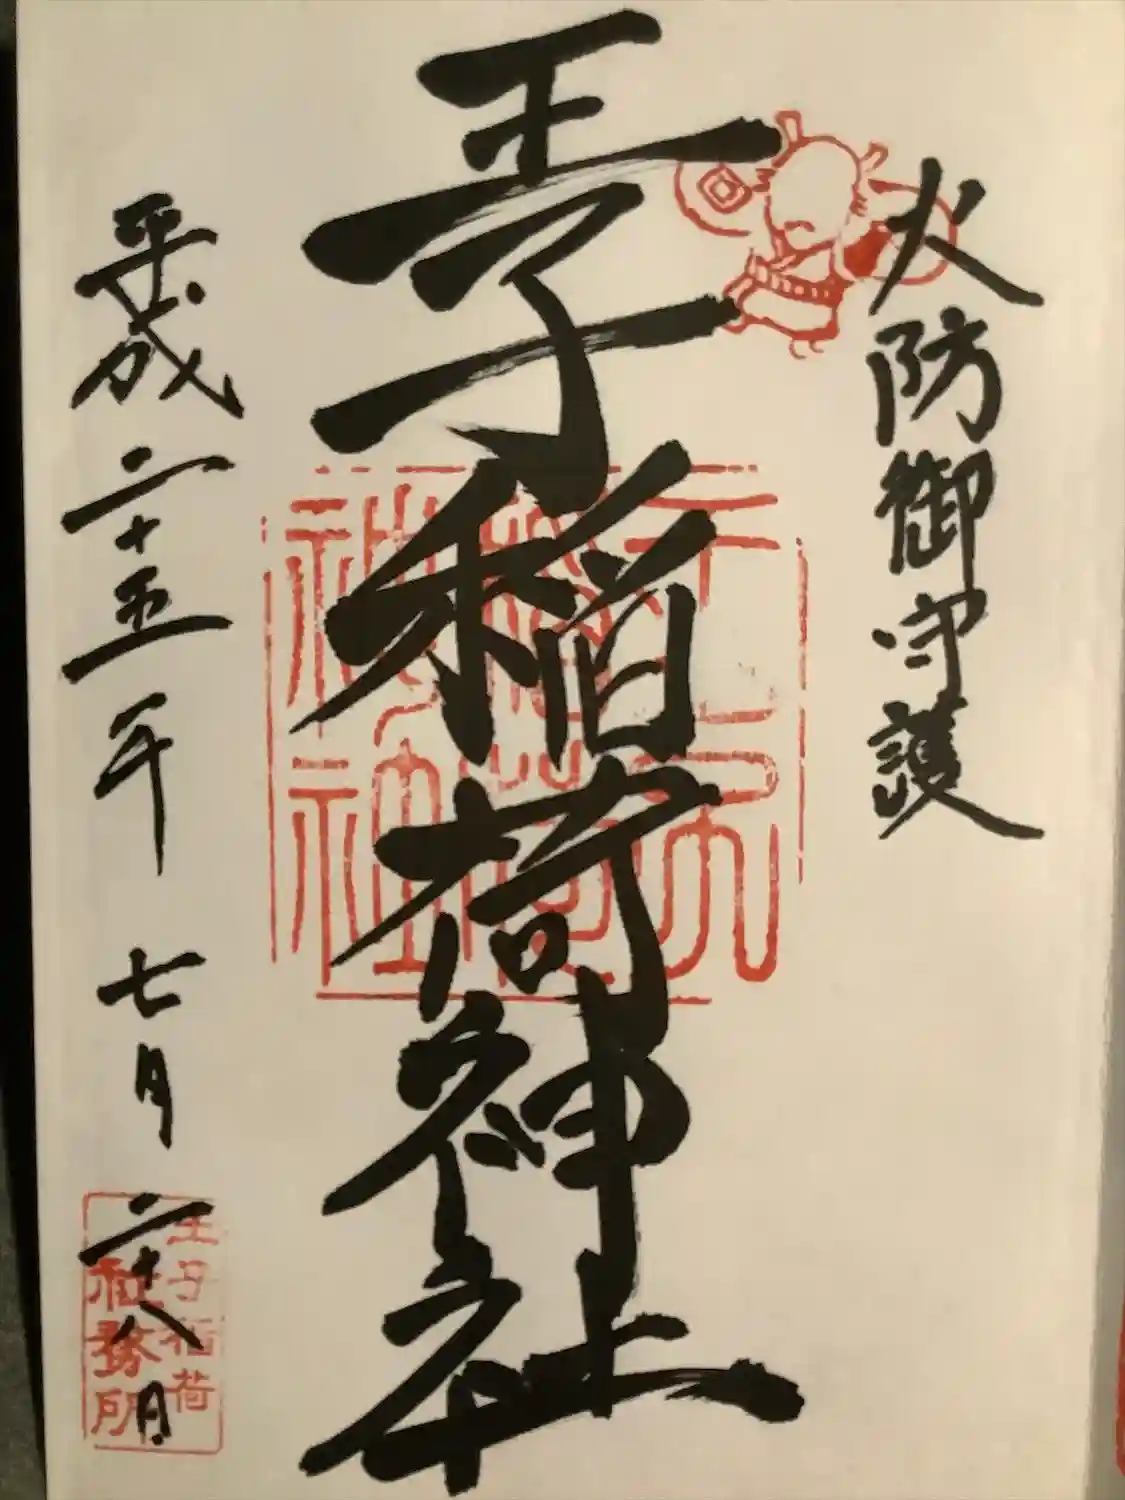 火防御守護
王子稲荷神社
平成二十五年 七月 二十八日
王子稲荷
社務所